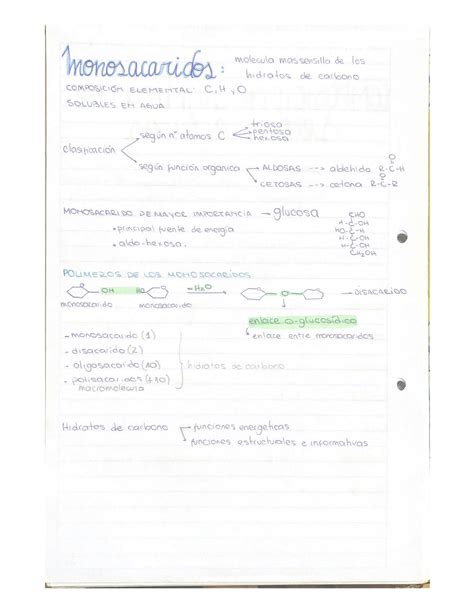 monosacaridos: molecula mas sensilla de los
hidratos de carbono
COMPOSICIÓN ELEMENTAL: C, H, O
SOLUBLES EN AGUA
clasificación
según nº atomos C
triosa
pentosa
hexosa
según función organica
ALDOSAS ---> aldehido R-C-H
O
CETOSAS ---> cetona R-C-R
O
MONOSACARIDO DE MAYOR IMPORTANCIA → glucosa
• principal fuente de energía
• aldo-hexosa.
CHO
H-C-OH
HO-C-H
H-C-OH
H-C-OH
CH2OH
POLIMEROS DE LOS MONOSOCARIDOS
OH HO -H2O O → DISACARIDO
monosacarido monosacarido
enlace o-glucosídico
enlace entre monosacaridos
- monosacarido (1)
- disacarido (2)
- oligosacarido (10)
- polisacarido (+10)
macromolecula
hidratos de carbono
Hidratos de carbono
funciones energeticas
funciones estructurales e informativas